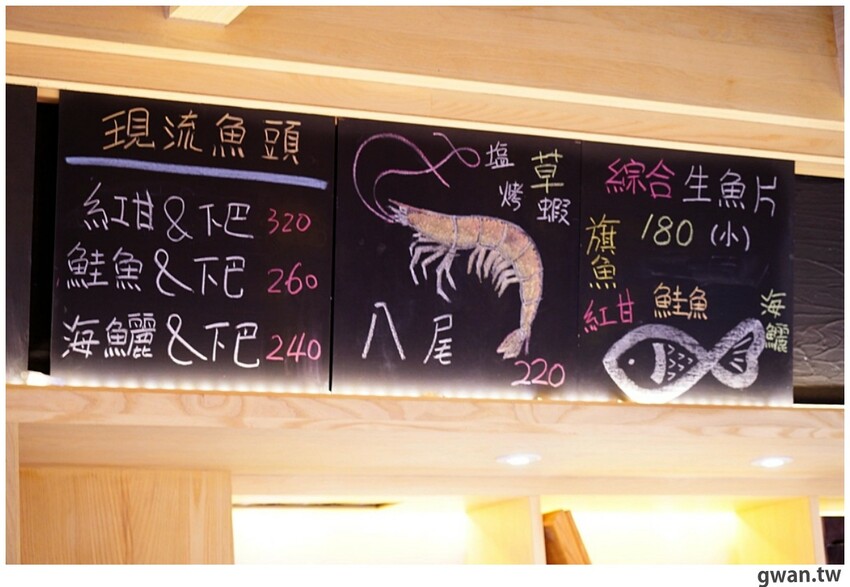 現流魚頭
紅甘&下巴 320
鮭魚&下巴 260
海鱺&下巴 240
塩烤
草蝦
八尾
220
綜合生魚片
180 (小)
旗魚
紅甘
鮭魚
海鱺
gwan.tw